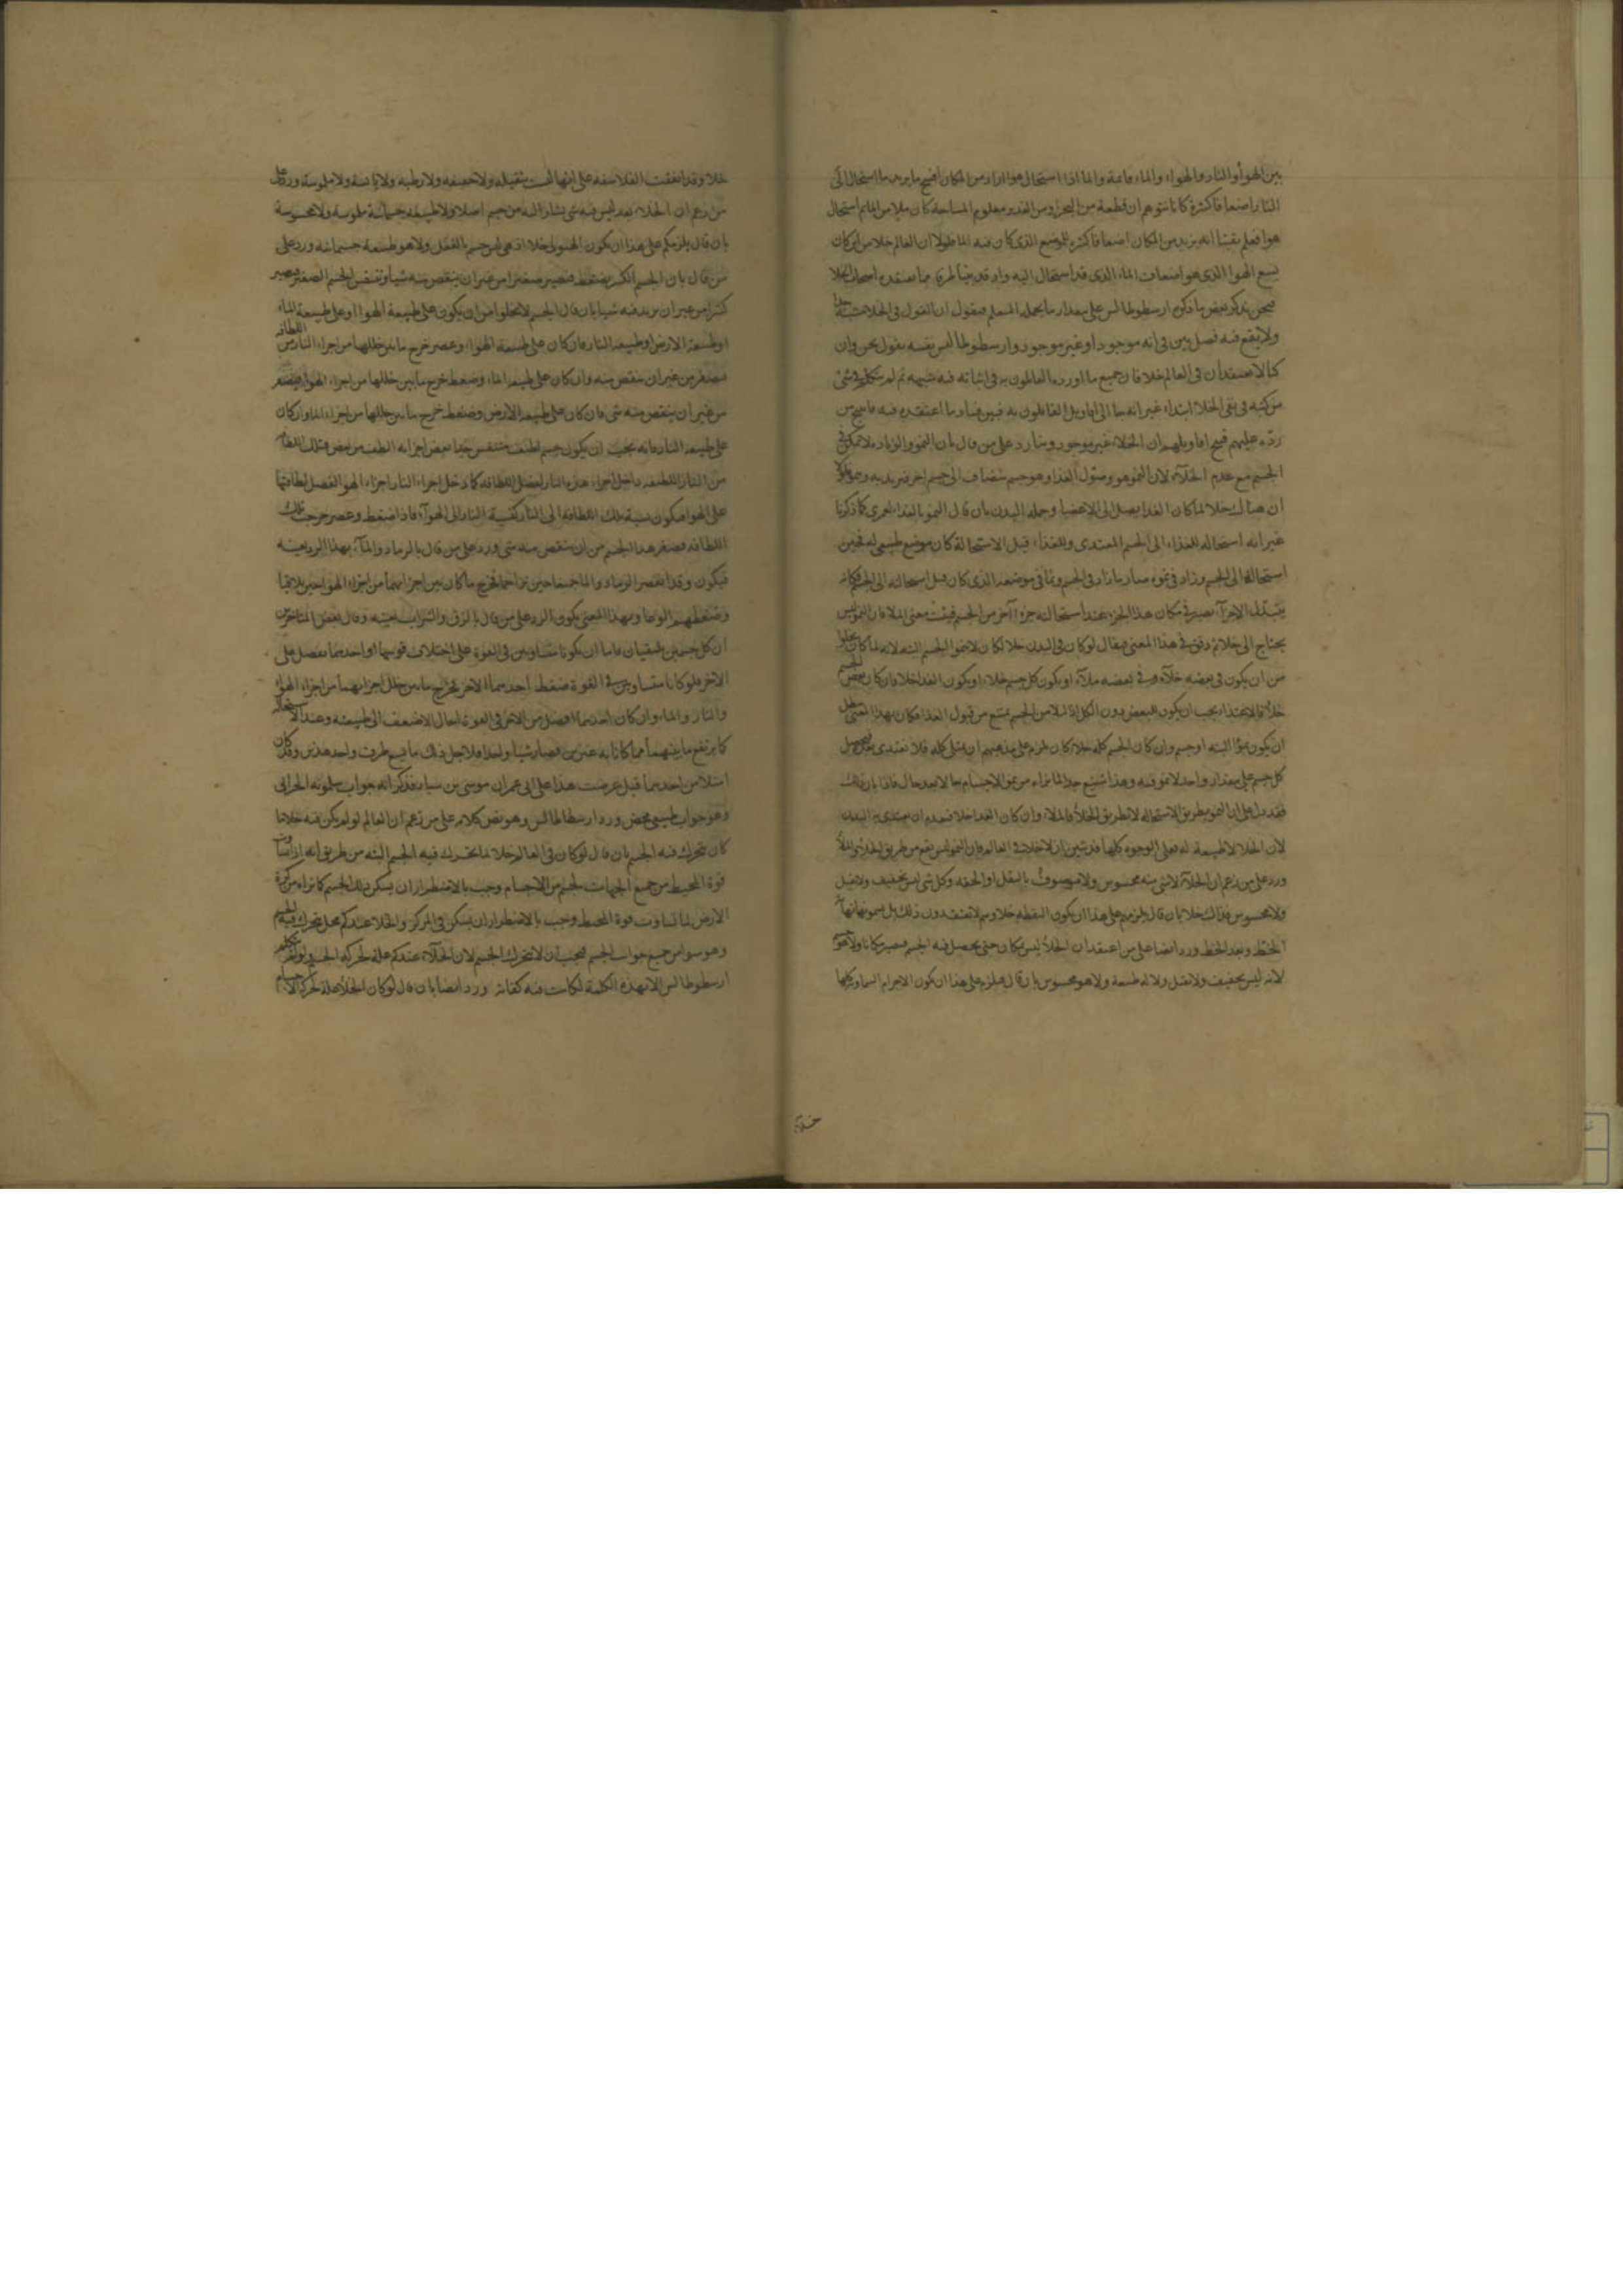 بين الهوا والنار والهواء والماء قائمة والما اذا استحال هوا ازداد من المكان افسح ما يريد ما استحال الى
النار اضعافا كثيرة كانا نتوهم ان قطعة من البحر او من الغدير معلوم المساحة كان ملا من الما ثم استحال
هوا فعلم يقينا انه يزيد من المكان اضعافا كثيرة للموضع الذى كان فيه الما فلولا ان العالم خلا من اين كان
يسع الهوا الذى هو اضعاف الماء الذى قد استحال اليه واذ قد بينا طرفا مما نعتقده اصحاب الخلا
فنحن نذكر بعض ما ذكره ارسطوطالس على مقدار ما يحمله المتعلم فنقول ان القول فى الخلا مشبه جدا
ولا يقع فيه فصل بين فى انه موجود او غير موجود وارسطوطالس نفسه يقول نحن وان
كنا لا نعتقد ان فى العالم خلا فان جميع ما اورده القائلون به فى اثباته فيه شبهه ثم لم يتكلم فى شى
من كتبه فى نفى الخلا ابتداء غير انه جا الى اقاويل القائلين به فبين فساد ما اعتقدوه فيه فاستخرج من
رده عليهم قبيح اقاويلهم ان الخلاء غير موجود ومما رد على من قال بان النمو والزيادة لا تمكن فى
الجسم مع عدم الخلاء لان النمو هو وصول الغذا وهو جسم ينضاف الى جسم اخر فيزيد به وجملته فلولا
ان هناك خلا لما كان الغذا يصل الى الاعضا وجملة البدن بان قال النمو بالغذاء لعمرى كما ذكرنا
غير انه استحالة للغذاء الى الجسم المغتدى وللغذاء قبل الاستحالة كان موضع طبيعى له فحين
استحالة الى الجسم وزاد فى نموه صار ما زاد فى الجسم ونما فى موضعه الذى كان قبل استحالته الى الجسم فكانه
يتبدل الاجزاء بصير فى مكان هذا الجزء عند استحالته جزءا آخر من الجسم فيثبت معنى الملا فان النمو ليس
يحتاج الى خلا ثم دقق فى هذا المعنى فقال لو كان فى البدن خلا لكان لا ينمو الجسم البته لانه لما كان لا يخلوا
من ان يكون فى بعضه خلاء وفى بعضه ملاء او يكون كل جسم خلاء او يكون الغذا خلا فان كان بعض الجسم
خلا فالاغتذاء يجب ان يكون للبعض دون الكل
ان يكون نموا البته او جسم وان كان الجسم كله خلا كان يلزم على مذهبهم ان يمتلى كله فلا يغتدى
كل جسم على مقدار واحد لا نمو فيه وهذا شنيع جدا لما نراه من نمو الاجسام حالا بعد حال فاذا بان ذلك
فقد دل على ان النمو بطريق الاستحالة لا بطريق الخلا والملاء وان كان الغذا خلا فمعدوم ان يغتدى به البدن
لان الخلا لا طبيعة له فعلى الوجوه كلها قد تبين ان لا خلا فى العالم وان النمو ليس يقع من طريق الخلا والملا
ورد على من زعم ان الخلاء لا شى منه محسوس ولا موصوف بالثقل او الخفه وكل شى ليس بخفيف ولا ثقيل
ولا محسوس فذاك خلا بان قال يلزمهم على هذا ان يكون النقطه خلا وهم لا يعتقدون ذلك بل يسمونها نهاية
الخط وبعد الخط ورد ايضا على من اعتقد ان الخلا ليس بمكان حتى يحصل فيه الجسم فيصير مكانا ولا هو
لانه ليس بخفيف ولا ثقيل ولا له طبيعة ولا هو محسوس بان قال فيلزم على هذا ان يكون الاجرام السماوية كلها
خلاء
خلا وقد اتفقت الفلاسفه على انها ليست بثقيله ولا خفيفه ولا رطبه ولا يابسة ولا ملموسة ورد على
من زعم ان الخلاء بعد ليس فيه شى يشار اليه من جسم اصلا ولا طبيعة جسمانية ملموسة ولا محسوسة
بان قال يلزمكم على هذا ان يكون الهيولى خلا اذ هى ليس جسم بالفعل ولا هو طبيعة جسمانيه ورد على
من قال بان الجسم الكبير يضغط فيصير صغيرا من غير ان ينقص منه شيا وتنفس الجسم الصغير فيصير
كثيرا من غير ان يزيد فيه شيا بان قال الجسم لا يخلوا من ان يكون على طبيعة الهوا او على طبيعة الماء
او طبيعة الارض او طبيعة النار فان كان على طبيعة الهواء وعصر خرج ما بين خللها من اجزاء النار من اللطافه
فصغر من غير ان ينقص منه وان كان على طبيعة الماء وضغط خرج ما بين خللها من اجزاء الهوا فيصغر
من غير ان ينقص منه شى فان كان على طبيعة الارض وضغط خرج ما بين خللها من اجزاء الما وان كان
على طبيعة النار فانه يجب ان يكون جسم لطيف متنفس جدا بعض اجزايه الطف من بعض فتلك اللطافة
من النار اللطيفه داخل اجزاء هذه النار لفضل اللطافه كما دخل اجزاء النار اجزاء الهوا لفضل لطافتها
على الهوا فيكون نسبة تلك اللطافة الى النار كنسبة النار الى الهواء فاذا ضغط وعصر خرجت تلك
اللطافه فصغر هذا الجسم من ان ينقص منه شى ورد على من قال بالرماد والماء بهذا الرد بعينه
فيكون وقد انعصر الرماد والما جميعا حين تزاحما فخرج ما كان بين اجزايهما من اجزاء الهوا حين تلاقيا
وضغطهم الوعا وبهذا المعنى يكون الرد على من قال بالزق والشراب بعينه وقال بعض المتاخرين
ان كل جسمين يلتقيان فاما ان يكونا متساويين فى القوة على اختلاف قوتيهما او احدهما يفضل على
الاخر فلو كانا متساويين فى القوة ضغط احدهما الاخر فخرج ما بين خلل اجزايهما من اجزاء الهواء
والنار والماء وان كان احدهما افضل من الاخر فى القوة احال الاضعف الى طبيعته وعند الاستحالة
كما يرتفع ما بينهما مما كانا به غيرين فصار شيا واحدا فلاجل ذلك ما يسع ظرف واحد هذين وقد كان
امتلا من احدهما قبل عرضت هذا على ابى عمران موسى بن سيار فذكر انه جواب سلمويه الحرانى
وهو جواب طبيعى محض ورد ارسطاطالس وهو نص كلامه على من زعم ان العالم لو لم يكن فيه خلا لما
كان يتحرك فيه الجسم بان قال لو كان فى العالم خلا لما تحرك فيه الجسم البته من طريق انه اذا تساوت
قوة المحيط من جميع الجهات لجسم من الاجسام وجب بالاضطرار ان يسكن ذلك الجسم كما نراه من كرة
الارض لما تساوت قوة المحيط وجب بالاضطرار ان يسكن فى المركز والخلا عندكم محل يتحرك فيه الجسم
وهو سوا من جميع جوانب الجسم فيجب ان لا يتحرك الجسم لان الخلاء عندكم علة لحركة الجسم ولو لم يتكلم
ارسطوطالس الا بهذه الكلمة لكانت فيه كفاية ورد ايضا بان قال لو كان الخلا علة لحركة الاجسام